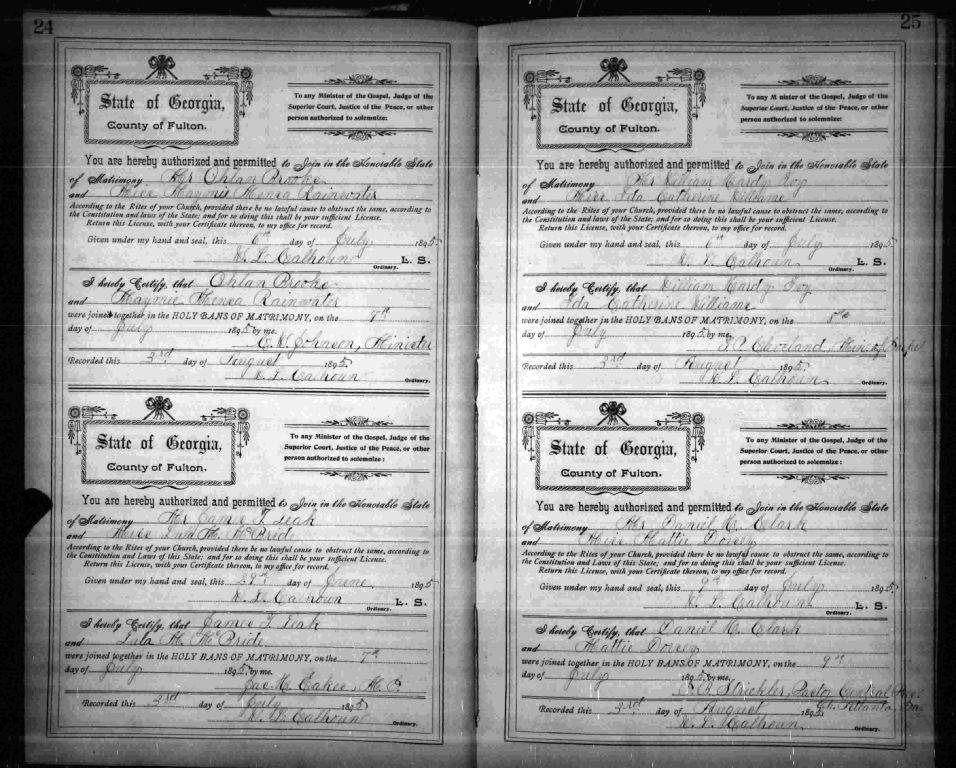 24
State of Georgia,
County of Fulton.
To any Minister of the Gospel, Judge of the
Superior Court, Justice of the Peace, or other
person authorized to solemnize:
You are hereby authorized and permitted to Join in the Honorable State
of Matrimony Mr Ohlan Brooke
and Miss Maymie Menea Rainwater
According to the Rites of your Church, provided there be no lawful cause to obstruct the same, according to
the Constitution and laws of this State; and for so doing this shall be your sufficient License.
Return this License, with your Certificate thereon, to my office for record.
Given under my hand and seal, this 6th day of July 1895
W. L. Calhoun L. S.
Ordinary.
I hereby Certify, that Ohlan Brooke
and Maymie Menea Rainwater
were joined together in the HOLY BANS OF MATRIMONY, on the 7th
day of July 1895 by me.
Johnson, Minister
Recorded this 3rd day of August 1895
W. L. Calhoun
Ordinary.
State of Georgia,
County of Fulton.
To any Minister of the Gospel, Judge of the
Superior Court, Justice of the Peace, or other
person authorized to solemnize:
You are hereby authorized and permitted to Join in the Honorable State
of Matrimony Mr James T. Leak
and Miss Lula M. McBride
According to the Rites of your Church, provided there be no lawful cause to obstruct the same, according to
the Constitution and Laws of this State; and for so doing this shall be your sufficient License.
Return this License, with your Certificate thereon, to my office for record.
Given under my hand and seal, this 29th day of June 1895
W. L. Calhoun L. S.
Ordinary.
I hereby Certify, that James T. Leak
and Lula M. McBride
were joined together in the HOLY BANS OF MATRIMONY, on the 7th
day of July 1895 by me.
Jas. M. Eakes, M. G.
Recorded this 3rd day of July 1895
W. L. Calhoun
Ordinary.
25
State of Georgia,
County of Fulton.
To any Minister of the Gospel, Judge of the
Superior Court, Justice of the Peace, or other
person authorized to solemnize:
You are hereby authorized and permitted to Join in the Honorable State
of Matrimony Mr William Hardy Ivy
and Miss Ida Catherine Williams
According to the Rites of your Church, provided there be no lawful cause to obstruct the same, according to
the Constitution and laws of this State; and for so doing this shall be your sufficient License.
Return this License, with your Certificate thereon, to my office for record.
Given under my hand and seal, this 6th day of July 1895
W. L. Calhoun L. S.
Ordinary.
I hereby Certify, that William Hardy Ivy
and Ida Catherine Williams
were joined together in the HOLY BANS OF MATRIMONY, on the
day of July 1895 by me.
Cleveland,
Recorded this 3rd day of August 1895
W. L. Calhoun
Ordinary.
State of Georgia,
County of Fulton.
To any Minister of the Gospel, Judge of the
Superior Court, Justice of the Peace, or other
person authorized to solemnize:
You are hereby authorized and permitted to Join in the Honorable State
of Matrimony Mr Daniel C. Clark
and Miss Mattie Dorsey
According to the Rites of your Church, provided there be no lawful cause to obstruct the same, according to
the Constitution and Laws of this State; and for so doing this shall be your sufficient License.
Return this License, with your Certificate thereon, to my office for record.
Given under my hand and seal, this 9th day of July 1895
W. L. Calhoun L. S.
Ordinary.
I hereby Certify, that Daniel C. Clark
and Mattie Dorsey
were joined together in the HOLY BANS OF MATRIMONY, on the 9th
day of July 1895 by me.
Strickler, Pastor Central Pres.
Recorded this 3rd day of August 1895 Ch. Atlanta, Ga.
W. L. Calhoun
Ordinary.